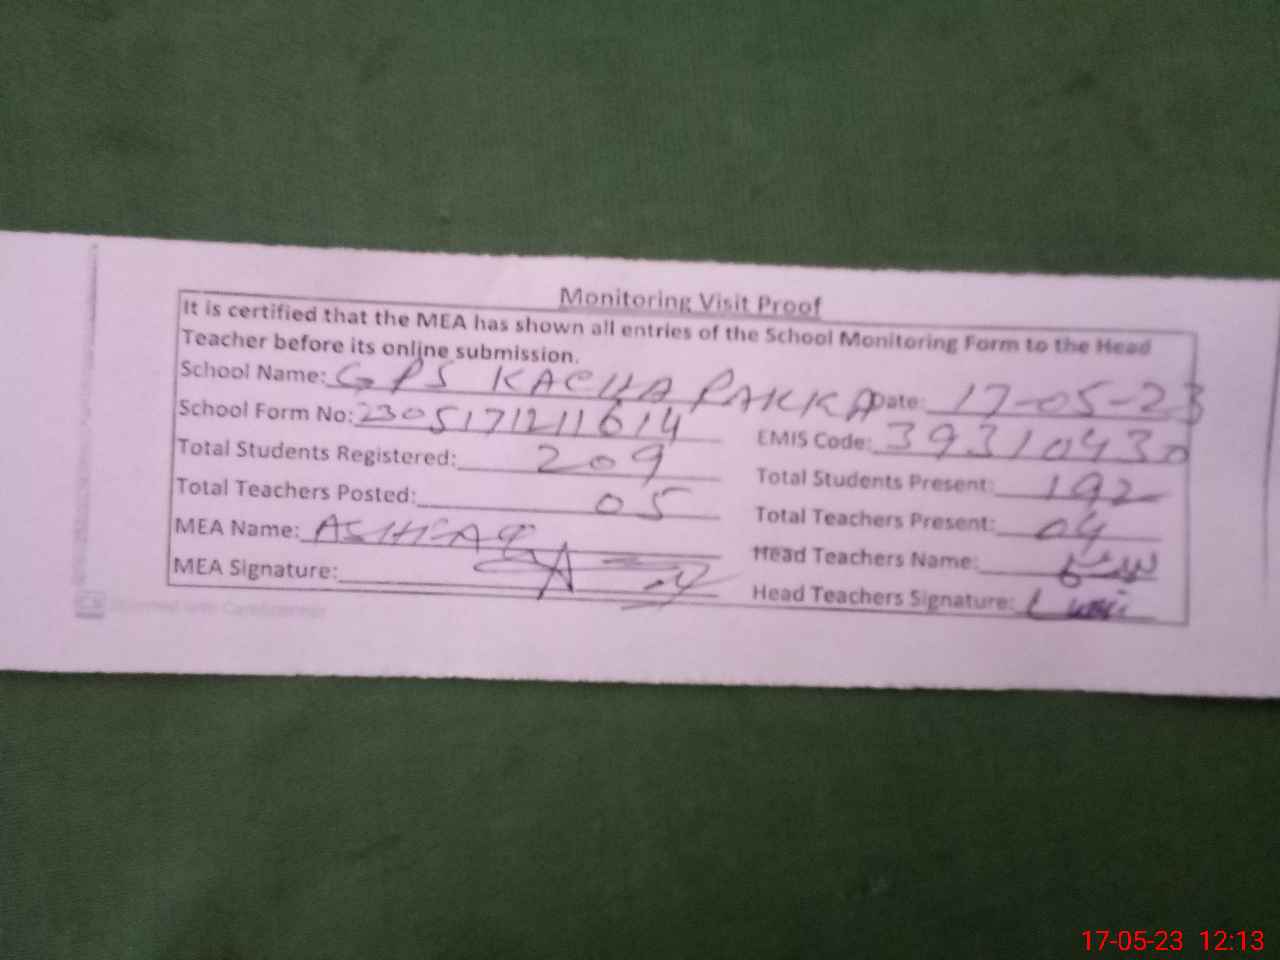 Monitoring Visit Proof
It is certified that the MEA has shown all entries of the School Monitoring Form to the Head
Teacher before its online submission.
School Name: GPS KACHA PAKKA Date: 17-05-23
School Form No: 2305171211614 EMIS Code: 39310430
Total Students Registered: 209 Total Students Present: 192
Total Teachers Posted: 05 Total Teachers Present: 04
MEA Name: ASHFAQ Head Teachers Name:
MEA Signature: Head Teachers Signature:
CS Scanned with CamScanner
17-05-23 12:13